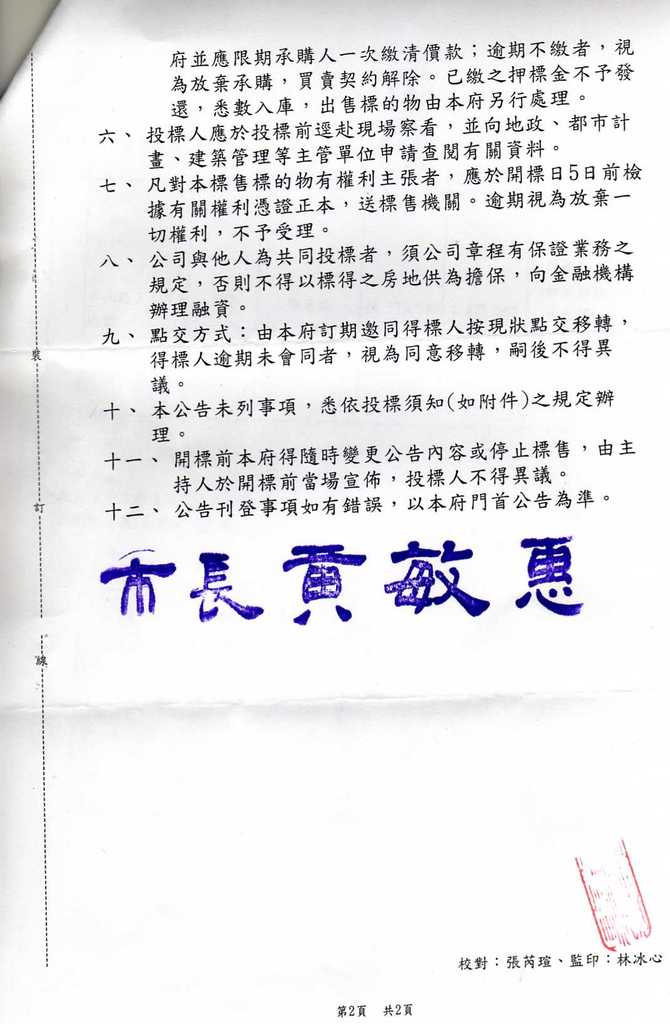 府並應限期承購人一次繳清價款；逾期不繳者，視
為放棄承購，買賣契約解除。已繳之押標金不予發
還，悉數入庫，出售標的物由本府另行處理。
六、投標人應於投標前逕赴現場察看，並向地政、都市計
畫、建築管理等主管單位申請查閱有關資料。
七、凡對本標售標的物有權利主張者，應於開標日5日前檢
據有關權利憑證正本，送標售機關。逾期視為放棄一
切權利，不予受理。
八、公司與他人為共同投標者，須公司章程有保證業務之
規定，否則不得以標得之房地供為擔保，向金融機構
辦理融資。
九、點交方式：由本府訂期邀同得標人按現狀點交移轉，
得標人逾期未會同者，視為同意移轉，嗣後不得異
議。
十、本公告未列事項，悉依投標須知(如附件)之規定辦
理。
十一、開標前本府得隨時變更公告內容或停止標售，由主
持人於開標前當場宣佈，投標人不得異議。
十二、公告刊登事項如有錯誤，以本府門首公告為準。
市長黃敏惠
裝
訂
線
校對：張芮瑄、監印：林冰心
第2頁 共2頁